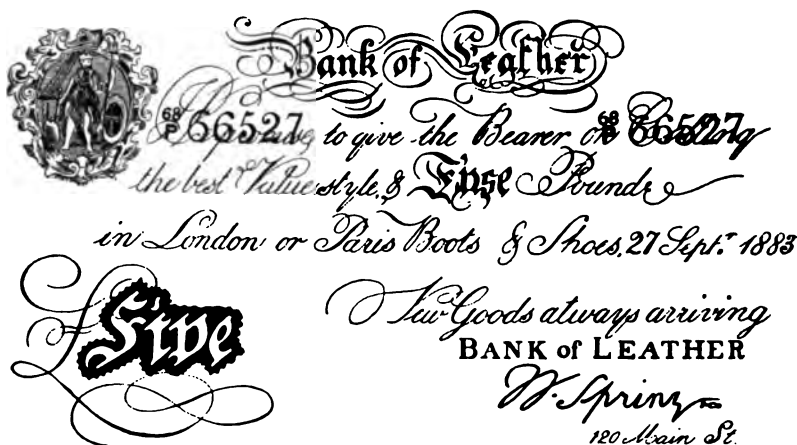 Bank of Leather
68P 66527 68P 66527
I Promise to give the Bearer on Calling
the best Value style, & Ease Pounds
in London or Paris Boots & Shoes, 27 Sept. 1883
New Goods always arriving
Five
BANK of LEATHER
W. Spring
120 Main St.